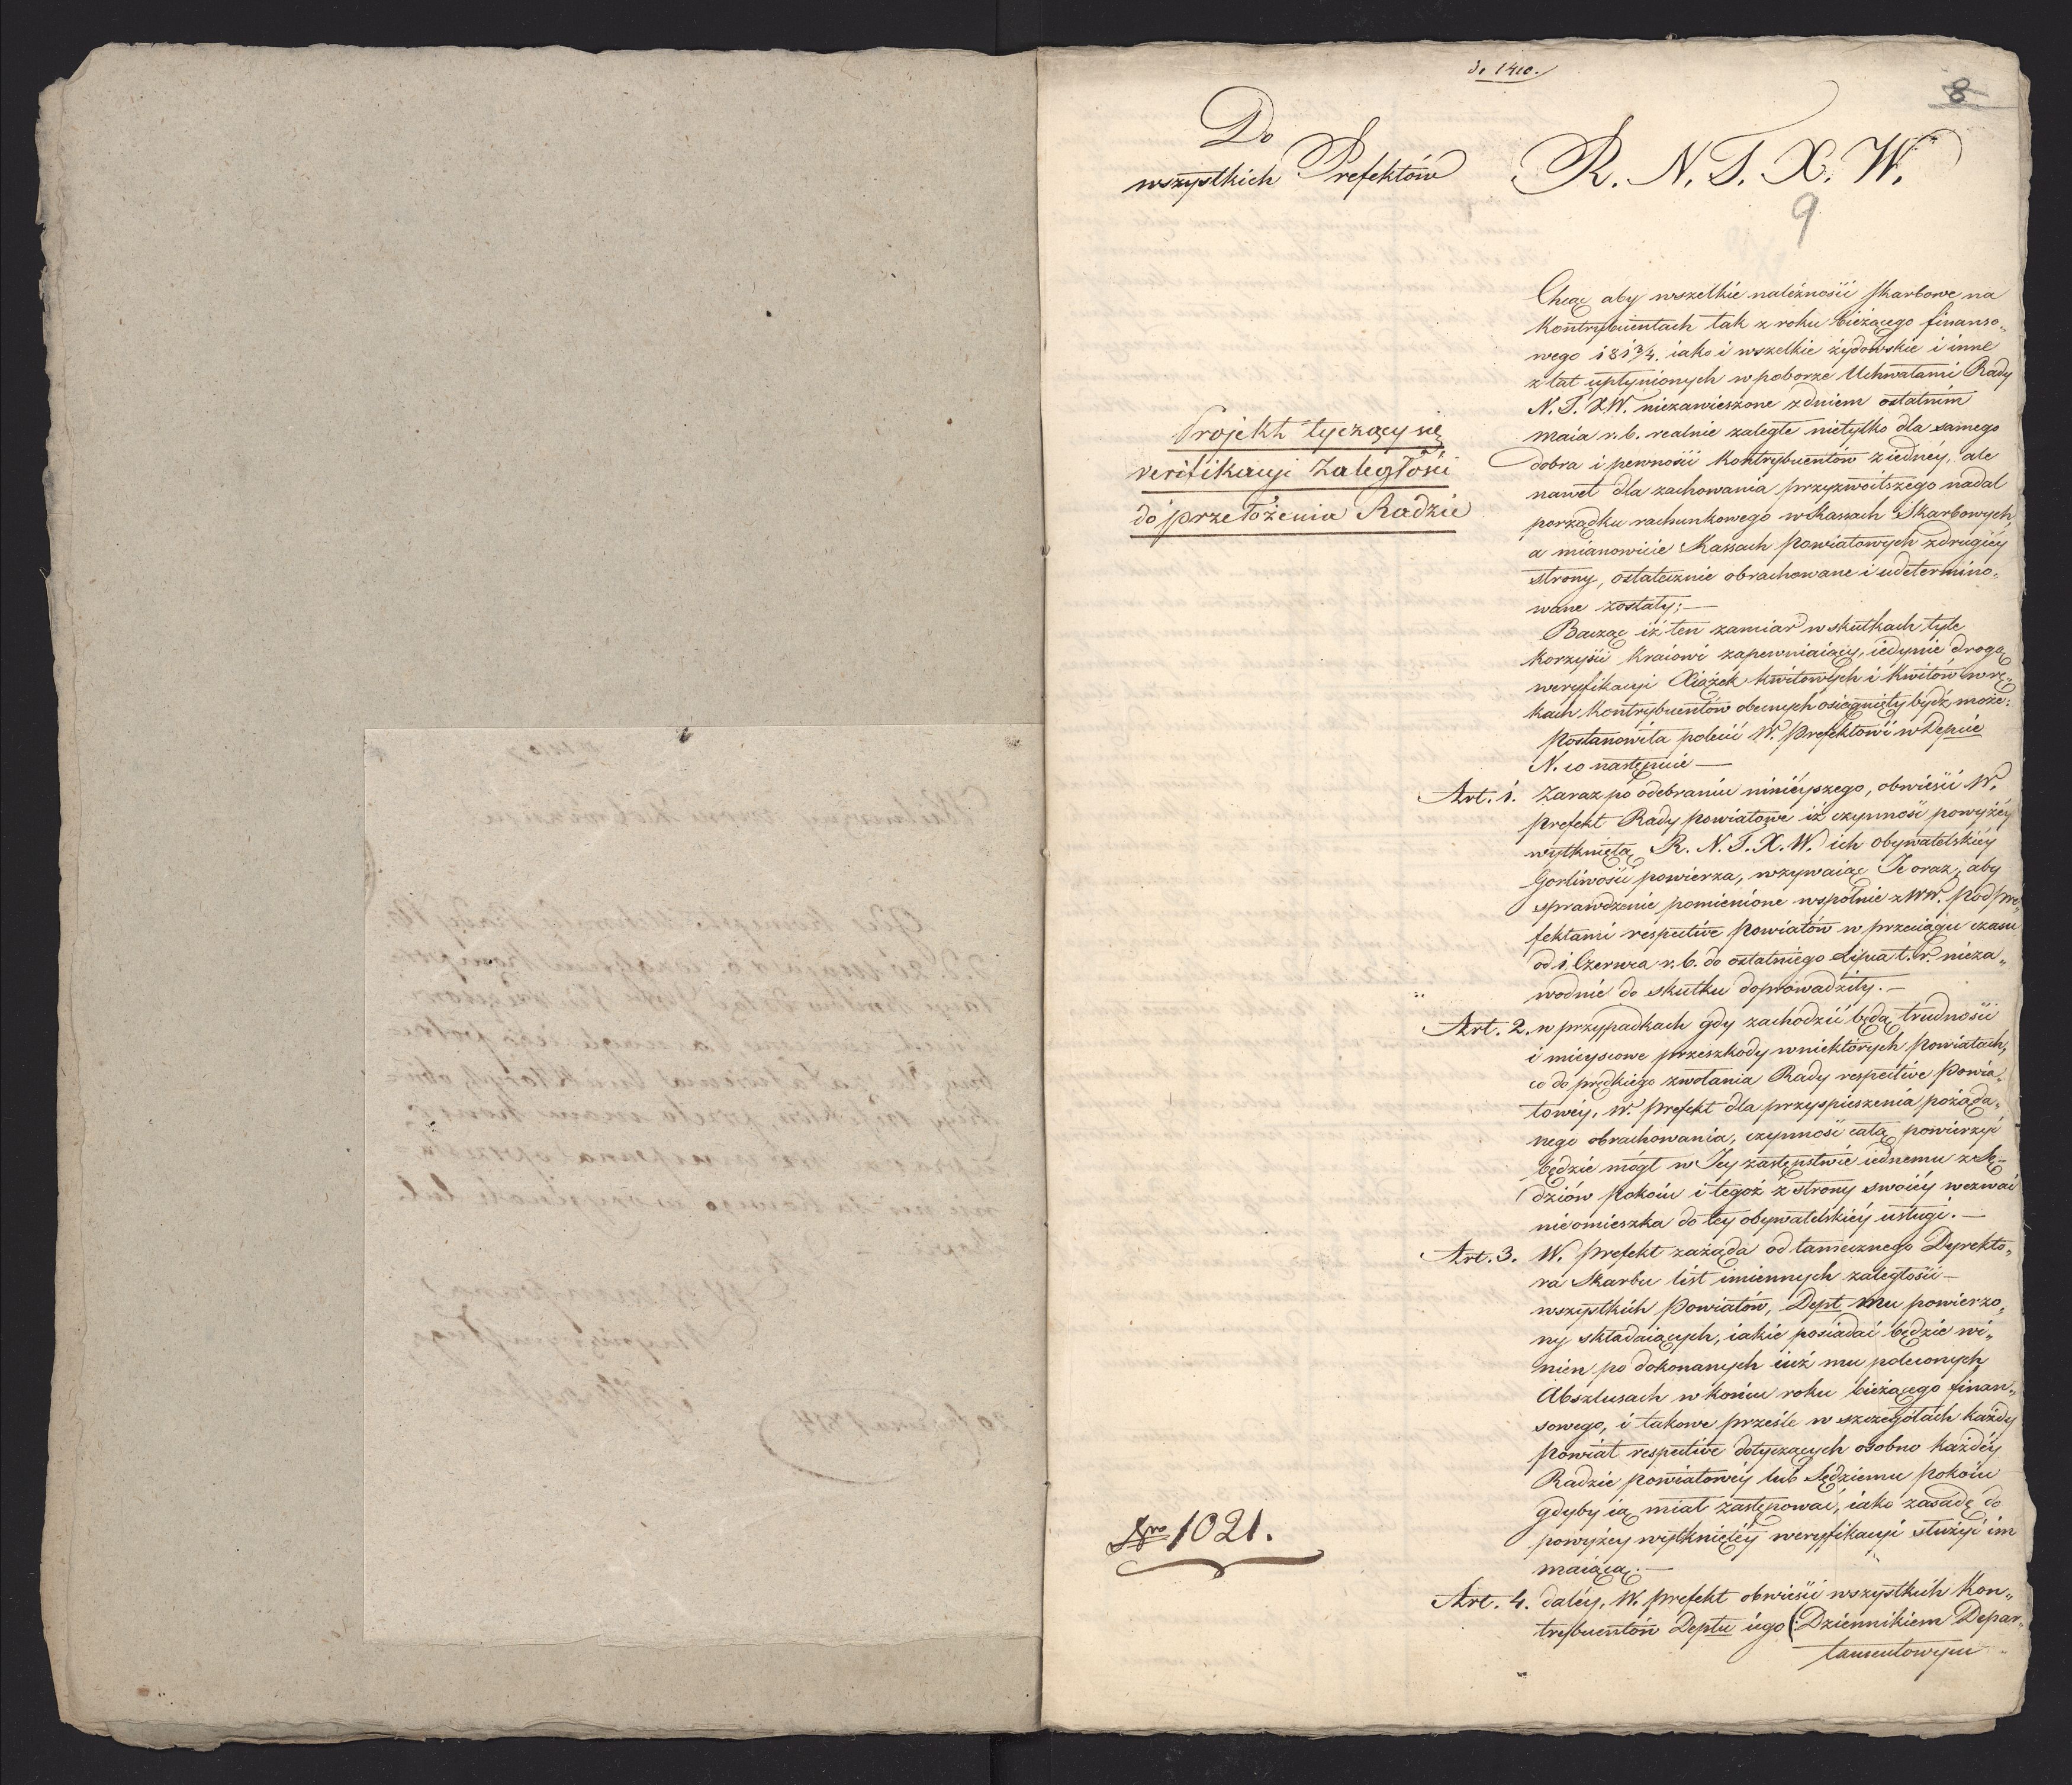 do 1410.
8
Do
wszystkich Prefektów
R. N. T. X. W.
9
Projekt tyczący się
verifikacyi Zaległości
do przełożenia Radzie
Chcąc aby wszelkie należności skarbowe na
Kontrybuentach tak z roku bieżącego finanso„
wego 181¾. iako i wszelkie żydowskie i inne
z lat upłynionych w poborze Uchwałami Rady
N. T. X W. niezawieszone z dniem ostatnim
maia r. b. realnie zaległe nietylko dla samego
dobra i pewności Kontrybuentów z iedney, ale
nawet dla zachowania przyzwoitszego nadal
porządku rachunkowego w Kassach Skarbowych,
a mianowicie Kassach Powiatowych z drugiéy
strony, ostatecznie obrachowane i udetermino„
wane zostały; —
Bacząc iż ten zamiar w skutkach tyle
korzyści Kraiowi zapewniaiący, iedynie drogą
weryfikacyi Xiążek kwitowych i kwitów w rę„
kach Kontrybuentów obecnych osiągnięty bydź może:
Postanowiła polecić W. Prefektowi w Depcie
N. co następuie —
Art. 1. Zaraz po odebraniu ninieyszego, obwieści W.
Prefekt Rady Powiatowe iż czynność powyżéy
wytkniętą R. N. T. X. W. ich obywatelskiéy
Gorliwości powierza, wzywaiąc Je oraz, aby
sprawdzenie pomienione wspólnie z WW. Podpre„
fektami respective Powiatów w przeciągu czasu
od 1. Czerwca r. b. do ostatniego Lipca t. r. nieza„
wodnie do skutku doprowadziły. —
Art. 2. w przypadkach gdy zachodzić będą trudności
i mieyscowe przeszkody w niektórych Powiatach,
co do prędkiego zwołania Rady respective Powia„
towéy, W. Prefekt dla przyspieszenia pożąda„
nego obrachowania, czynność całą powierzyć
będzie mógł w Jey zastępstwie iednemu z Sę„
dziów Pokoiu i tegoż z strony swoiéy wezwać
nieomieszka do tey obywatelskiéy usługi. —
Art. 3. W. Prefekt zażąda od tamecznego Dyrekto„
ra Skarbu list imiennych zaległości —
wszystkich Powiatów, Dept mu powierzo„
ny składaiących, iakie posiadać będzie wi„
nien po dokonanych iuż mu poleconych
Abszlusach w końcu roku bieżącego finan„
sowego, i takowe prześle w szczegółach każdy
Powiat respective dotyczących osobno każdéy
Radzie Powiatowéy lub Sędziemu Pokoiu
gdyby ią miał zastępować, iako zasadę do
powyżey wytkniętéy weryfikacyi służyć im
maiącą. —
Art. 4. daléy, W. Prefekt obwieści wszystkich Kon„
trybuentów Deptu iego (: Dziennikiem Depar„
tamentowym
Nro 1021.